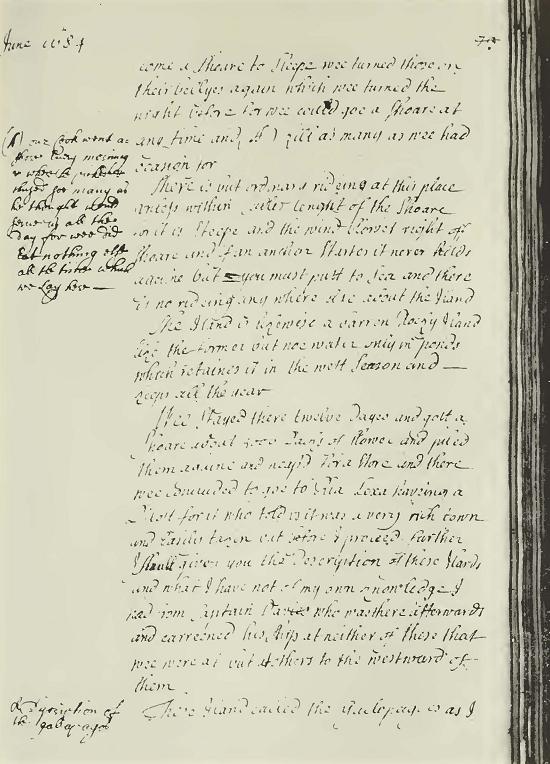 June 1684
come a Shoare to Sleepe wee turned those on
their bellyes again which wee turned the
night before for wee could goe a Shoare at
any time and (A) kill as many as wee had
occasion for
There is but ordinary rideing at this place
unless within lenght of the Shoare
for it is Steepe and the wind blowes right off
Shoare and if an anchor Starts it never holds
againe but you must putt to Sea and there
is no rideing any where else about the Iland
The Iland is likewise a barren Rocky Iland
like the former but noe water only in ponds
which retaines it in the wett Season and
keeps all the year
Wee Stayed there twelve Dayes and gott a
Shoare about Packs of flower and piled
them againe and for a Store and there
wee concluded to goe to Ria Lexa haveing a
Pilott for it who told us it was a very rich town
and Easily taken but before I proceed further
I Shall give you the Description of these Ilands
and what I have not of my own knowledge I
had from Captain Davis who was there afterwards
and carreened his Ship at neither of these that
wee were at but at others to the westward of
them
These Ilands called the as I
(A) our Cook went a
Shore Every morning
& where the
for many as
he thought would
serve us all the
day for wee did
Eat nothing else
all the time which
we Lay here
a Discription of
the galapagos